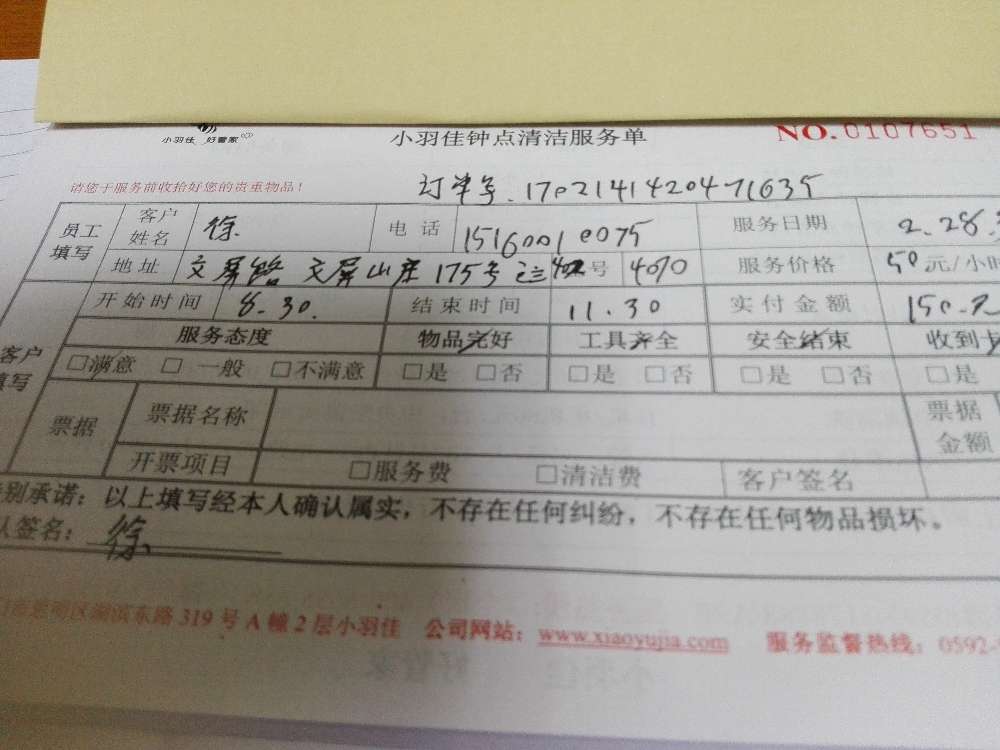 小羽佳 好管家
小羽佳钟点清洁服务单
NO.0107651
请您于服务前收拾好您的贵重物品！
订单号.170214142047 1635
员工填写 客户姓名 徐 电话 15160010075 服务日期 2.28
地址 文屏路 文屏山庄 175号 号 4070 服务价格 50元/小时
开始时间 8.30. 结束时间 11.30 实付金额 150.
客户填写 服务态度 物品完好 工具齐全 安全结束 收到
□满意 □一般 □不满意 □是 □否 □是 □否 □是 □否 □是
票据 票据名称 票据金额
开票项目 □服务费 □清洁费 客户签名
别承诺：以上填写经本人确认属实，不存在任何纠纷，不存在任何物品损坏。
人签名： 徐
明区湖滨东路 319 号 A 幢 2 层小羽佳 公司网站：www.xiaoyujia.com 服务监督热线：0592-